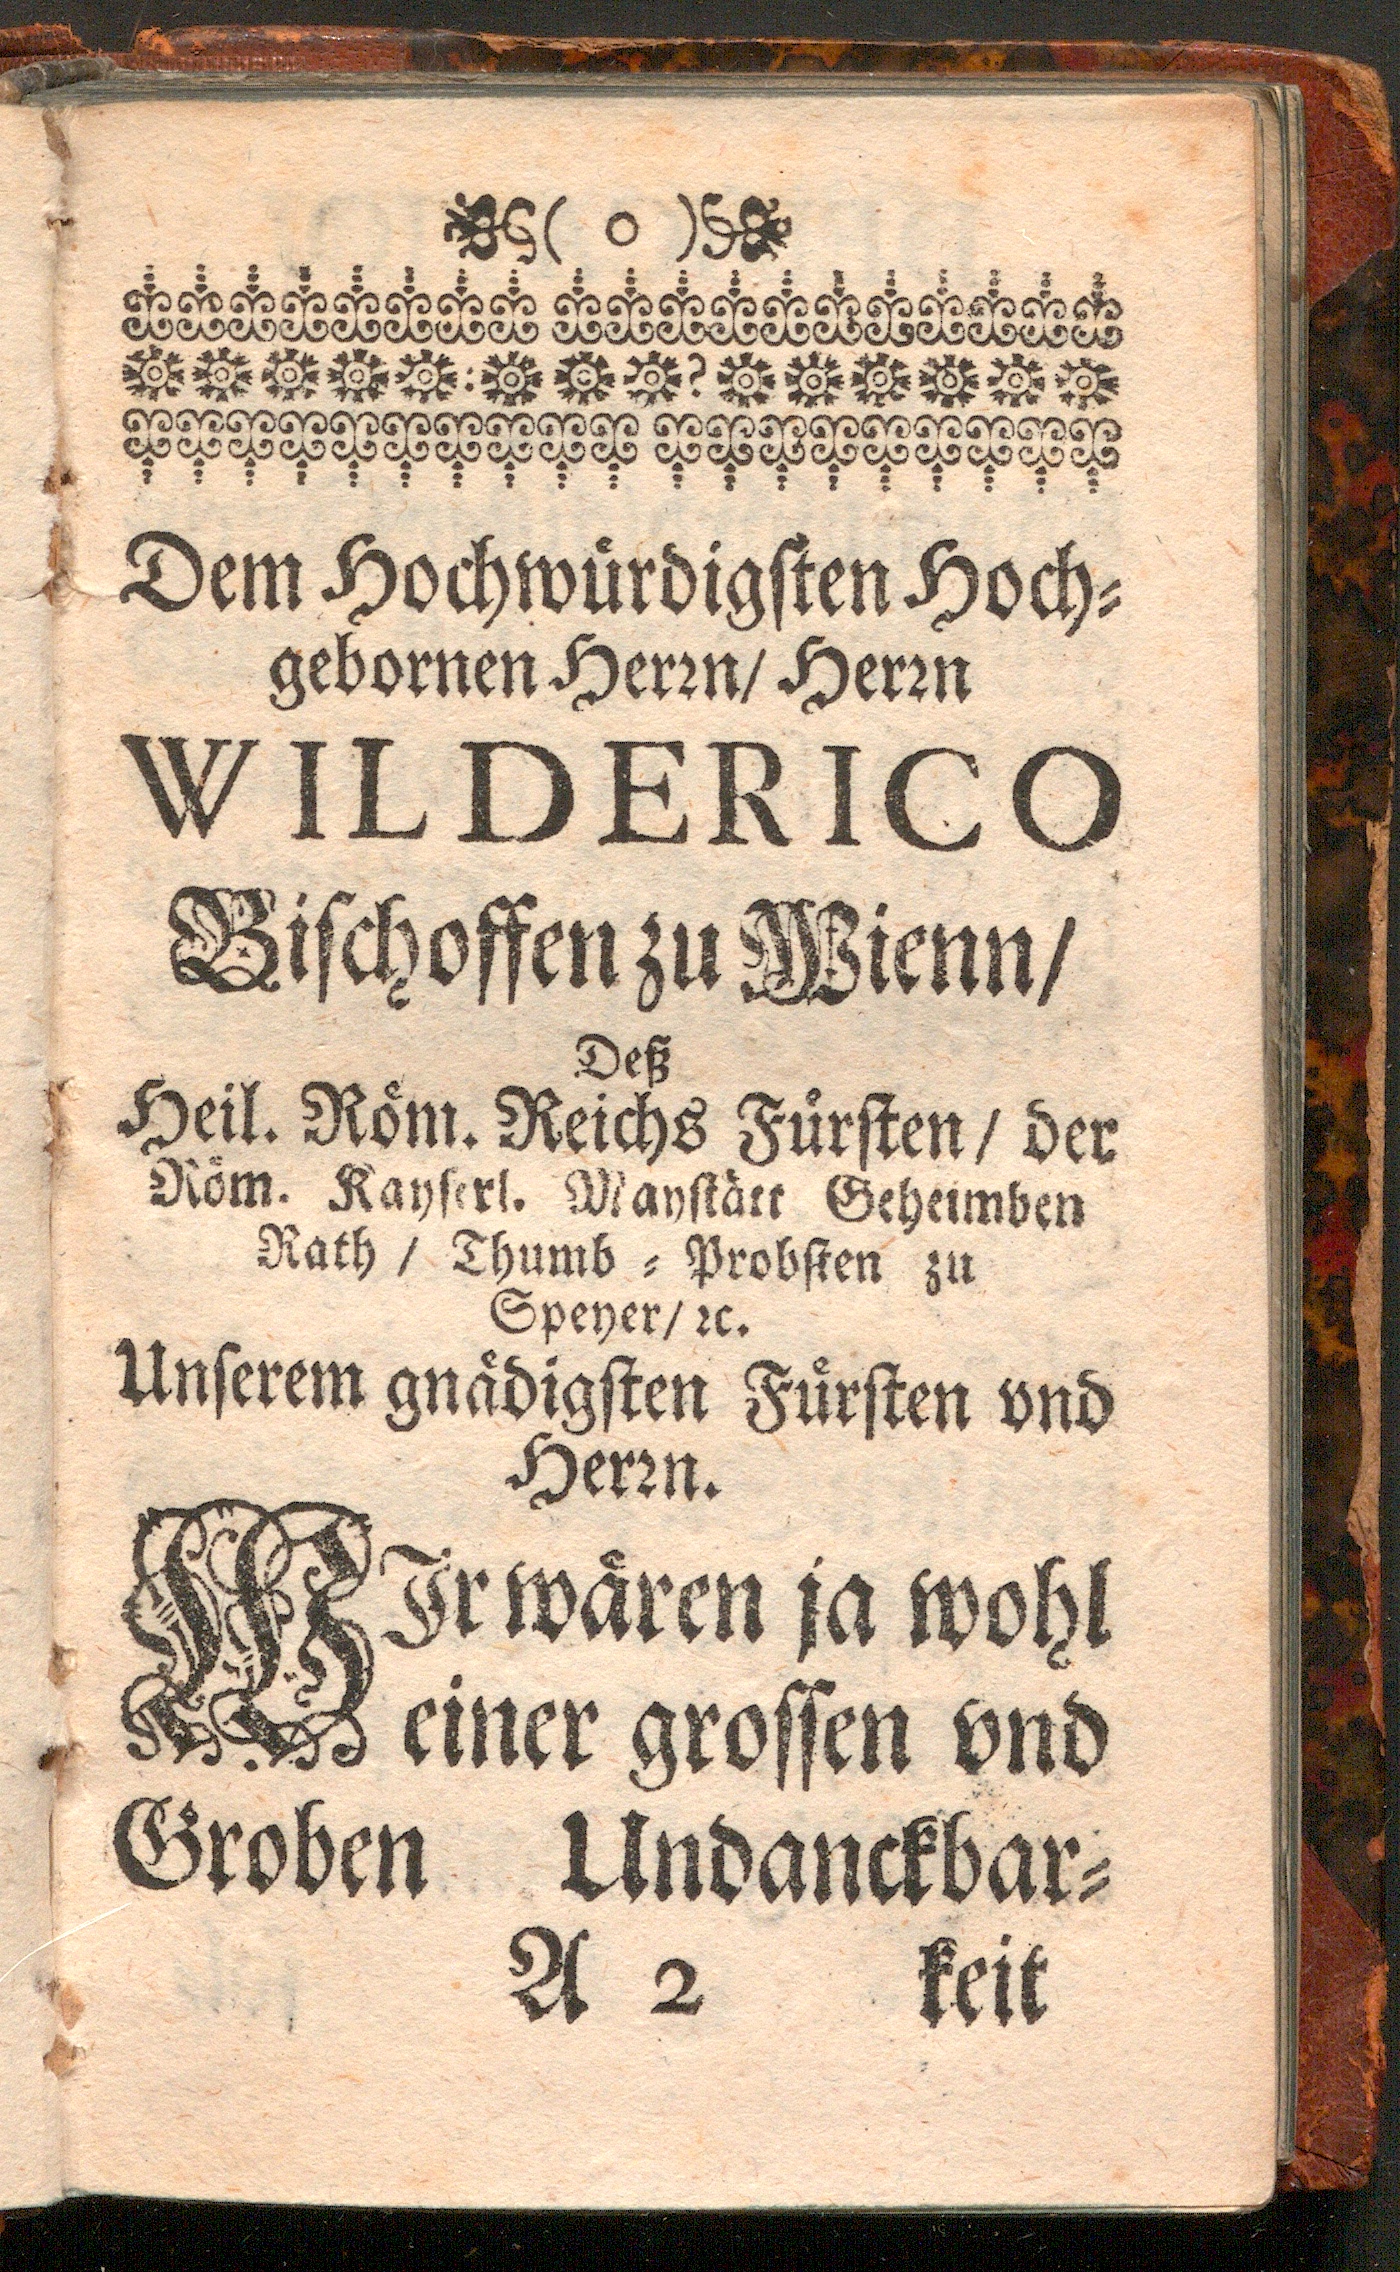 ( o )
Dem Hochwuͤrdigſten Hoch⸗
gebornen Herꝛn/ Herꝛn
WILDERICO
Biſchoffen zu Wienn/
Deß
Heil. Roͤm. Reichs Fuͤrſten/ der
Roͤm. Kayſerl. Mayſtaͤtt Geheimben
Rath / Thumb ⸗ Probſten zu
Speyer/ ꝛc.
Unſerem gnaͤdigſten Fuͤrſten vnd
Herꝛn.
WIr waͤren ja wohl
einer groſſen vnd
Groben Undanckbar⸗
A 2 keit